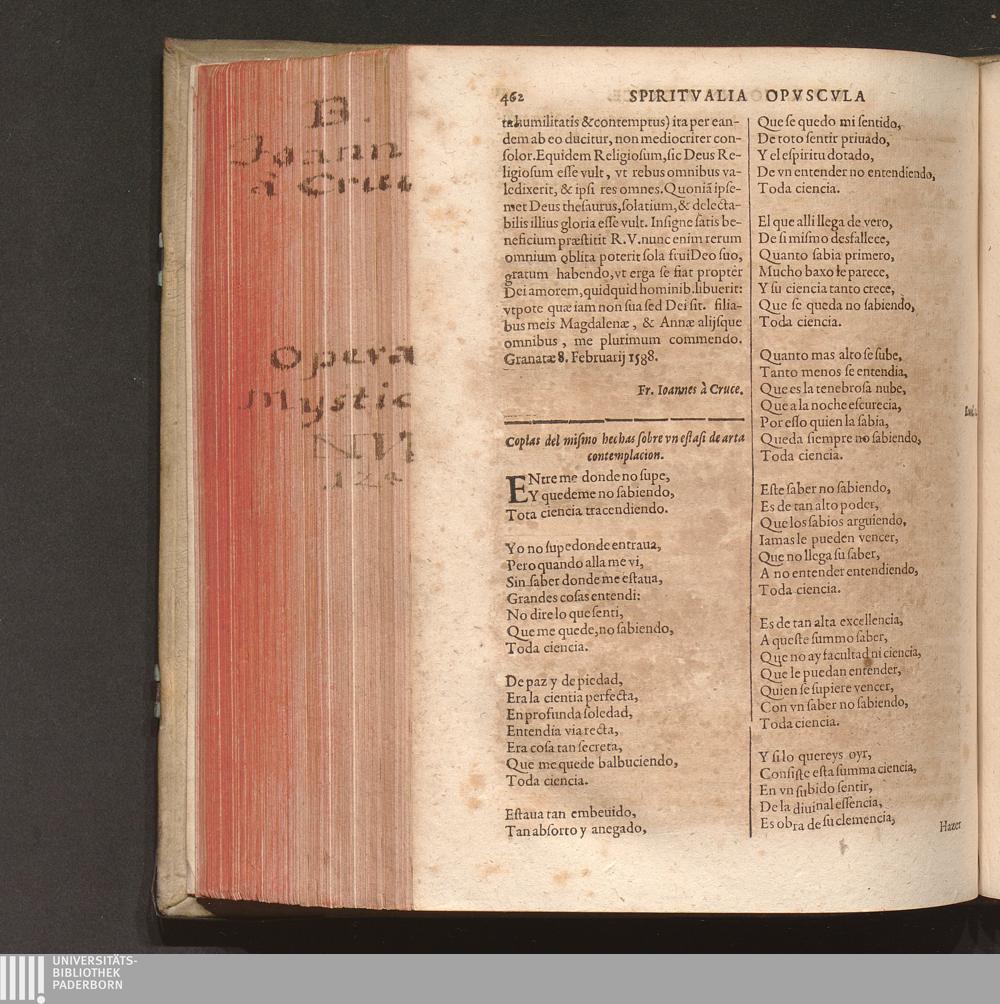 B.
Joann
à Cruc
Opera
Mystic
462 SPIRITVALIA OPVSCVLA
ta humilitatis & contemptus) ita per ean-
dem ab eo ducitur, non mediocriter con-
solor. Equidem Religiosum, sic Deus Re-
ligiosum esse vult, vt rebus omnibus va-
ledixerit, & ipsi res omnes. Quoniã ipse-
met Deus thesaurus, solatium, & delecta-
bilis illius gloria esse vult. Insigne satis be-
neficium præstitit R. V. nunc enim rerum
omnium oblita poterit sola frui Deo suo,
gratum habendo, vt erga se fiat propter
Dei amorem, quidquid hominib. libuerit:
vtpote quæ iam non sua sed Dei sit. filia-
bus meis Magdalenæ, & Annæ alijsque
omnibus, me plurimum commendo.
Granatæ 8. Februarij 1588.
Fr. Ioannes à Cruce.
Coplas del mismo hechas sobre vn estasi de arta
contemplacion.
ENtre me donde no supe,
Y quedeme no sabiendo,
Tota ciencia tracendiendo.
Yo no supe donde entraua,
Pero quando alla me vi,
Sin saber donde me estaua,
Grandes cosas entendi:
No dire lo que senti,
Que me quede, no sabiendo,
Toda ciencia.
De paz y de piedad,
Era la cientia perfecta,
En profunda soledad,
Entendia via recta,
Era cosa tan secreta,
Que me quede balbuciendo,
Toda ciencia.
Estaua tan embeuido,
Tan absorto y anegado,
Que se quedo mi sentido,
De toto sentir priuado,
Y el espiritu dotado,
De vn entender no entendiendo,
Toda ciencia.
El que alli llega de vero,
De si mismo desfallece,
Quanto sabia primero,
Mucho baxo le parece,
Y su ciencia tanto crece,
Que se queda no sabiendo,
Toda ciencia.
Quanto mas alto se sube,
Tanto menos se entendia,
Que es la tenebrosa nube,
Que a la noche escurecia,
Por esso quien la sabia,
Queda siempre no sabiendo,
Toda ciencia.
Este saber no sabiendo,
Es de tan alto poder,
Que los sabios arguiendo,
Iamas le pueden vencer,
Que no llega su saber,
A no entender entendiendo,
Toda ciencia.
Es de tan alta excellencia,
A queste summo saber,
Que no ay facultad ni ciencia,
Que le puedan entender,
Quien se supiere vencer,
Con vn saber no sabiendo,
Toda ciencia.
Y si lo quereys oyr,
Consiste esta summa ciencia,
En vn subido sentir,
De la diuinal essencia,
Es obra de su clemencia,
Hazer
UNIVERSITÄTS-
BIBLIOTHEK
PADERBORN